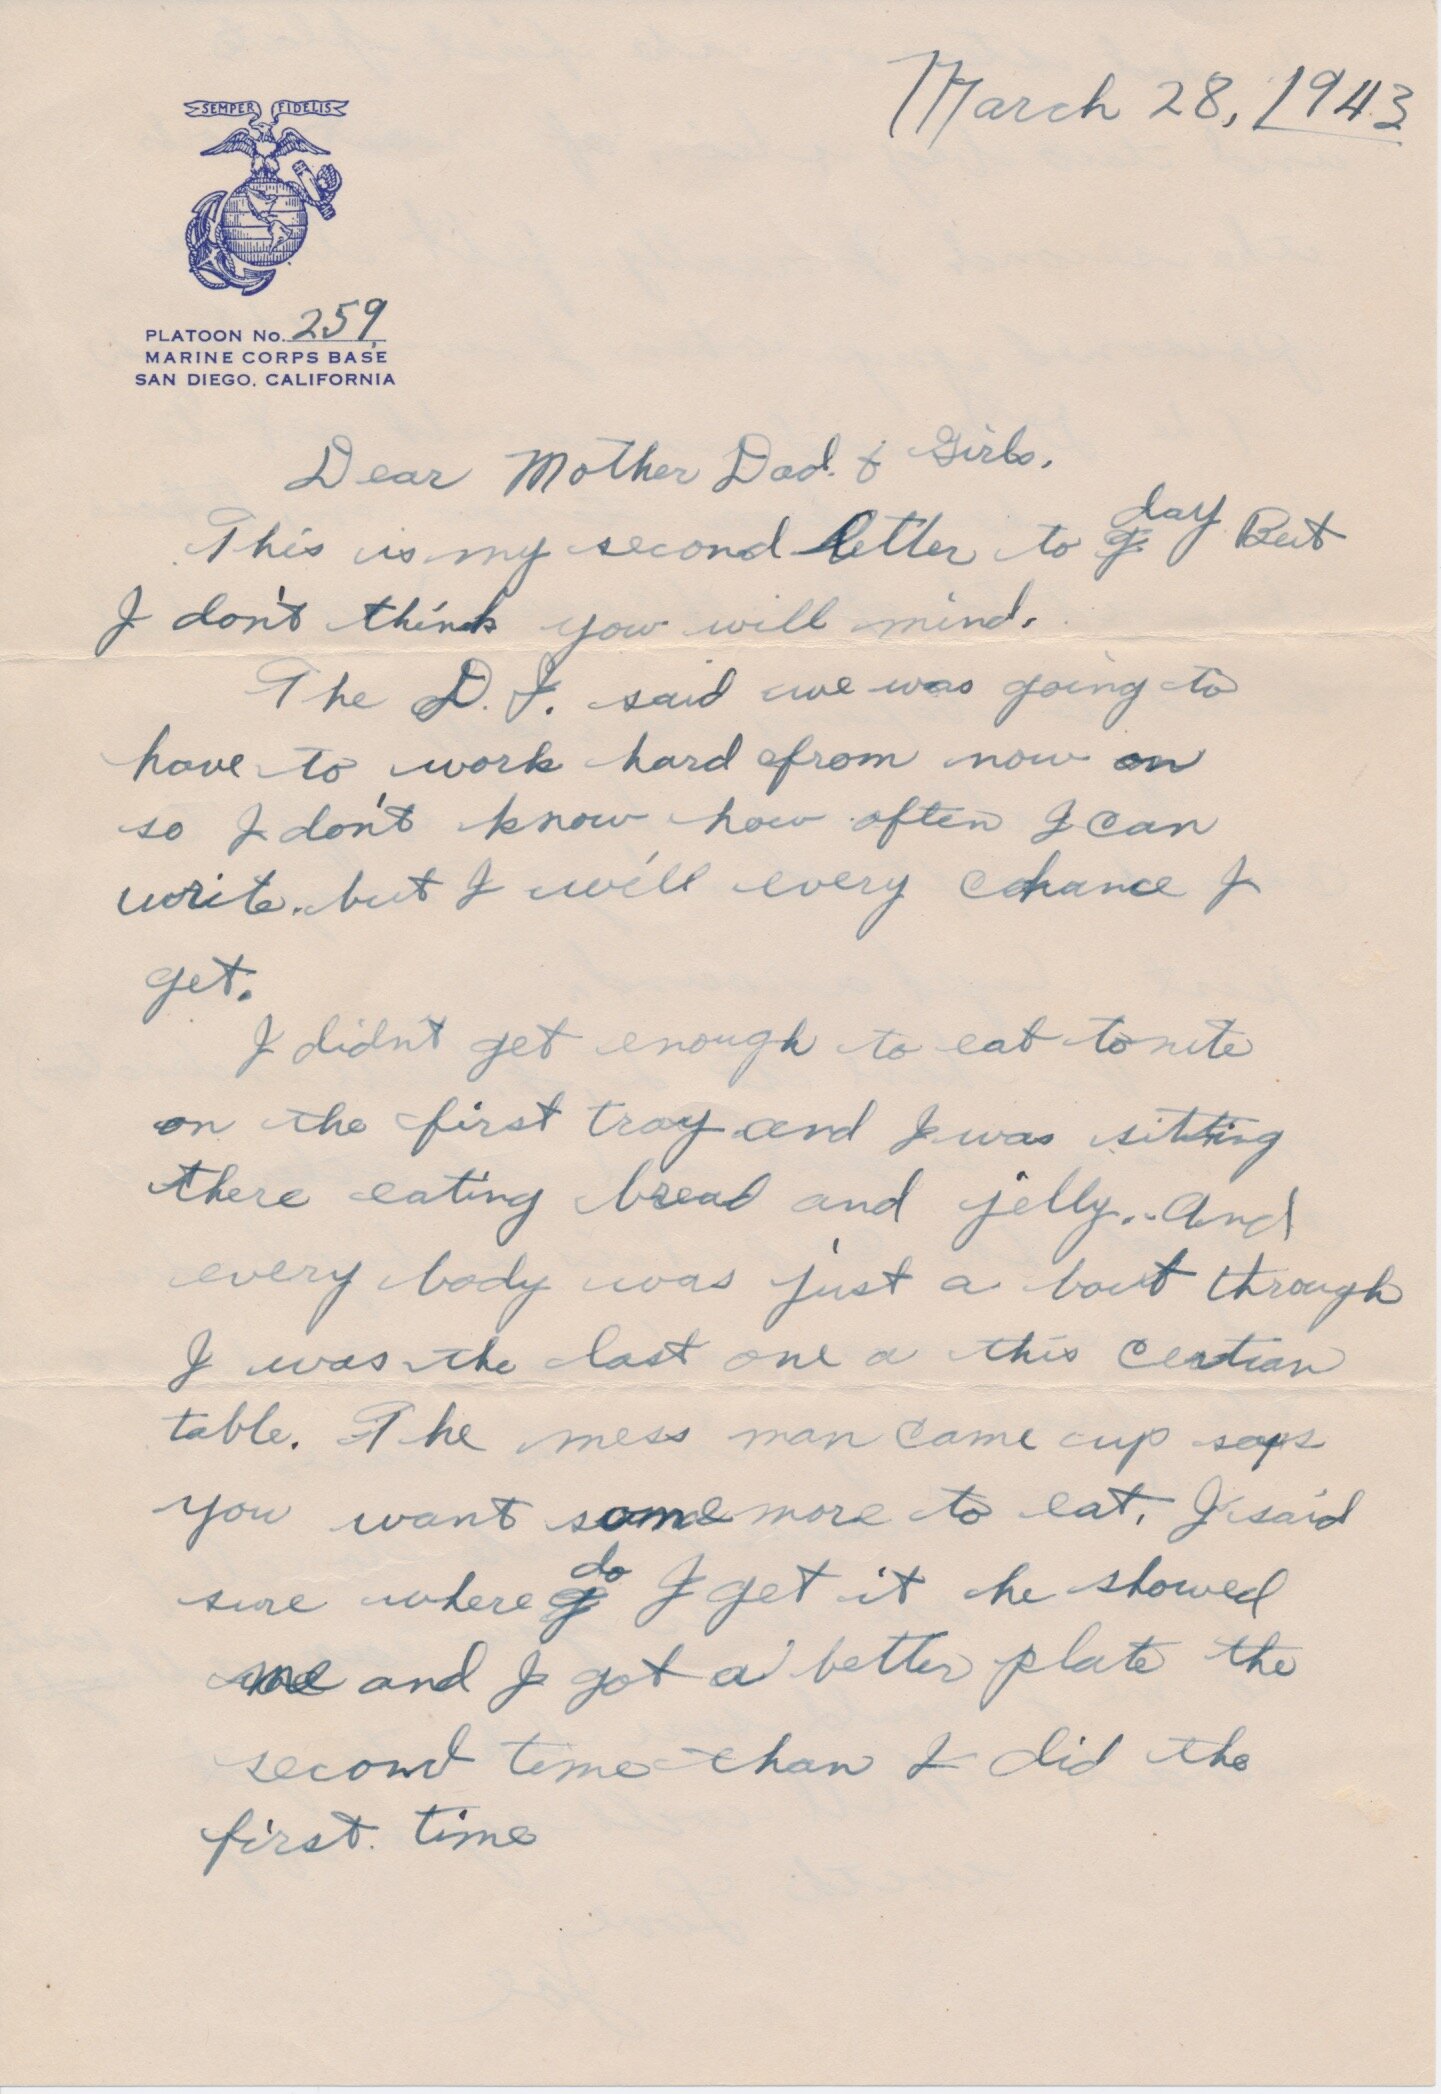 March 28, 1943
SEMPER FIDELIS
PLATOON No. 259
MARINE CORPS BASE
SAN DIEGO, CALIFORNIA
Dear Mother Dad. & Girls.
This is my second letter to day But
I don't think you will mind.
The D. I. said we was going to
have to work hard from now on
so I don't know how often I can
write. but I will every chance I
get.
I didn't get enough to eat tonite
on the first tray and I was sitting
there eating bread and jelly.. And
every body was just a bout through
I was the last one a this certian
table. The mess man came up says
you want some more to eat. I said
sure where do I get it he showed
me and I got a better plate the
second time than I did the
first. time